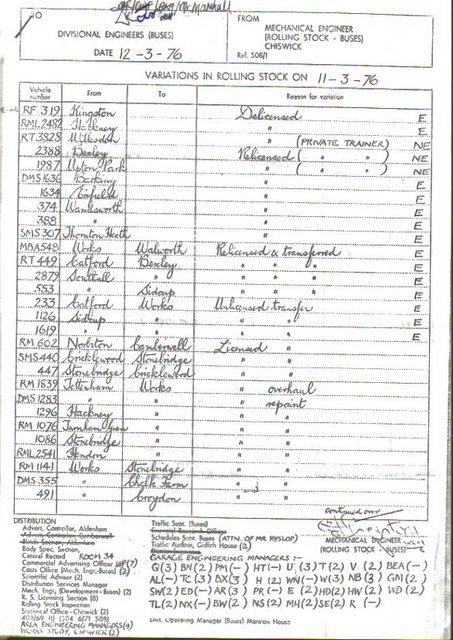 TO
DIVISIONAL ENGINEERS (BUSES)
DATE 12-3-76
FROM
MECHANICAL ENGINEER
(ROLLING STOCK - BUSES)
CHISWICK
Ref. 508/1
VARIATIONS IN ROLLING STOCK ON 11-3-76
Vehicle number From To Reason for variation
RF 319 Kingston Delicensed E
RML 2482 Hackney " E
RT 3828 Willesden " (PRIVATE TRAINER) NE
2388 Bexley Relicensed ( " " ) NE
1987 Upton Park " ( " " ) NE
DMS 1636 Barking " E
1634 Enfield " E
374 Wandsworth " E
388 " " E
SMS 307 Thornton Heath " E
MBA 548 Works Walworth Relicensed & transferred E
RT 449 Catford Bexley " " " E
2879 Southall " " " " E
553 " Sidcup " " " E
233 Catford Works Unlicensed transfer E
1126 Sidcup " " " E
1619 " " " " E
RM 602 Norbiton Camberwell Licensed "
SMS 440 Cricklewood Stonebridge " "
447 Stonebridge Cricklewood " "
RM 1839 Tottenham Works " overhaul
DMS 1283 " " " repaint
1296 Hackney " " "
RM 1076 Turnham Green " " "
1086 Stonebridge " " "
RML 2541 Hendon " " "
RM 1141 Works Stonebridge "
DMS 355 " Chalk Farm "
491 " Croydon "
continued over
MECHANICAL ENGINEER
(ROLLING STOCK - BUSES)
DISTRIBUTION
Advert. Controller, Aldenham
Advert. Controller, Camberwell
Body Spec. Section,
Central Record ROOM 34
Commercial Advertising Officer (7)
Costs Office (Mech. Engr. Buses) (2)
Scientific Advisor (2)
Distribution Services Manager
Mech. Engr. (Development - Buses) (2)
R. S. Licensing Section (8)
Rolling Stock Inspection
Statistical Office - Chiswick (2)
AREA ENGINEERING MANAGERS(9)
WORKS STUDY, CHISWICK (2)
Traffic Supt. (Buses)
Schedules Supt. Buses (ATTN. OF MR HYSLOP)
Traffic Auditor, Griffith House (2)
GARAGE ENGINEERING MANAGERS :-
G(3) BN(2) PM(-) HT(-) U(3) T(2) V(2) BEA(-)
AL(-) TC(3) BX(3) H(2) WN(-) W(3) NB(3) GM(2)
SW(2) ED(-) AR(3) PR(-) E(2) HD(2) HW(2) WD(2)
TL(2) NX(-) BW(2) NS(2) MH(2) SE(2) R(-)
Unit Operating Manager (Buses) Mansion House